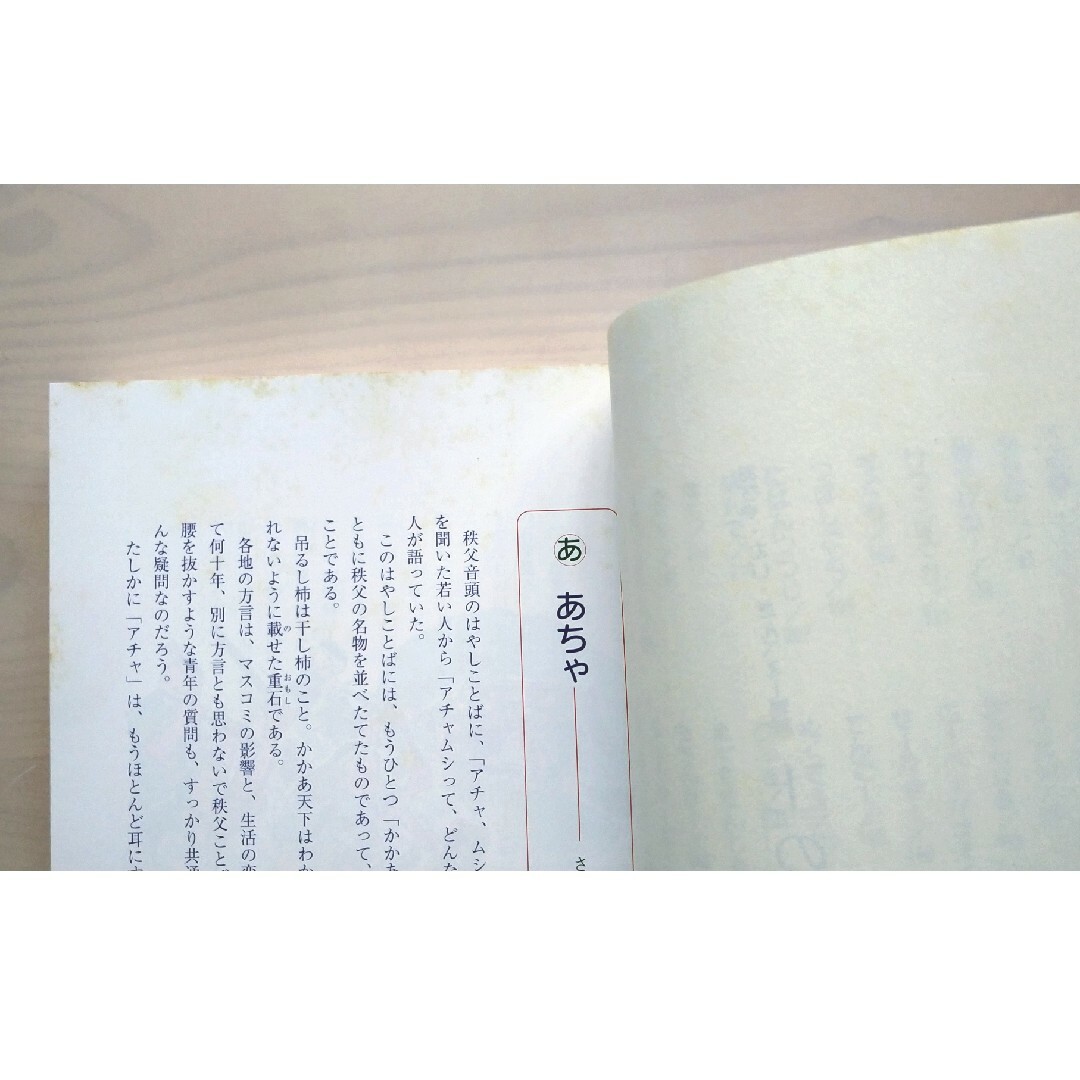 あ あちゃ━━さ
秩父音頭のはやしことばに、「アチャ、ムシ
を聞いた若い人から「アチャムシって、どんな
人が語っていた。
このはやしことばには、もうひとつ「かかあ
ともに秩父の名物を並べたてたものであって、
ことである。
吊るし柿は干し柿のこと。かかあ天下はわか
れないように載せた重石である。
各地の方言は、マスコミの影響と、生活の変
て何十年、別に方言とも思わないで秩父ことば
腰を抜かすような青年の質問も、すっかり共通
んな疑問なのだろう。
たしかに「アチャ」は、もうほとんど耳にす